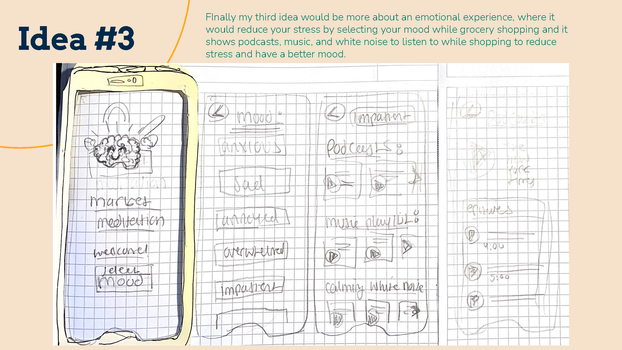 Idea #3
FInally my third idea would be more about an emotional experience, where it
would reduce your stress by selecting your mood while grocery shopping and it
shows podcasts, music, and white noise to listen to while shopping to reduce
stress and have a better mood.
market
meditation
welcome!
select
mood
mood:
anxious
sad
annoyed
overwhelmed
impatient
impatient
Podcasts:
music playlist:
calming white noise
4:00
5:00